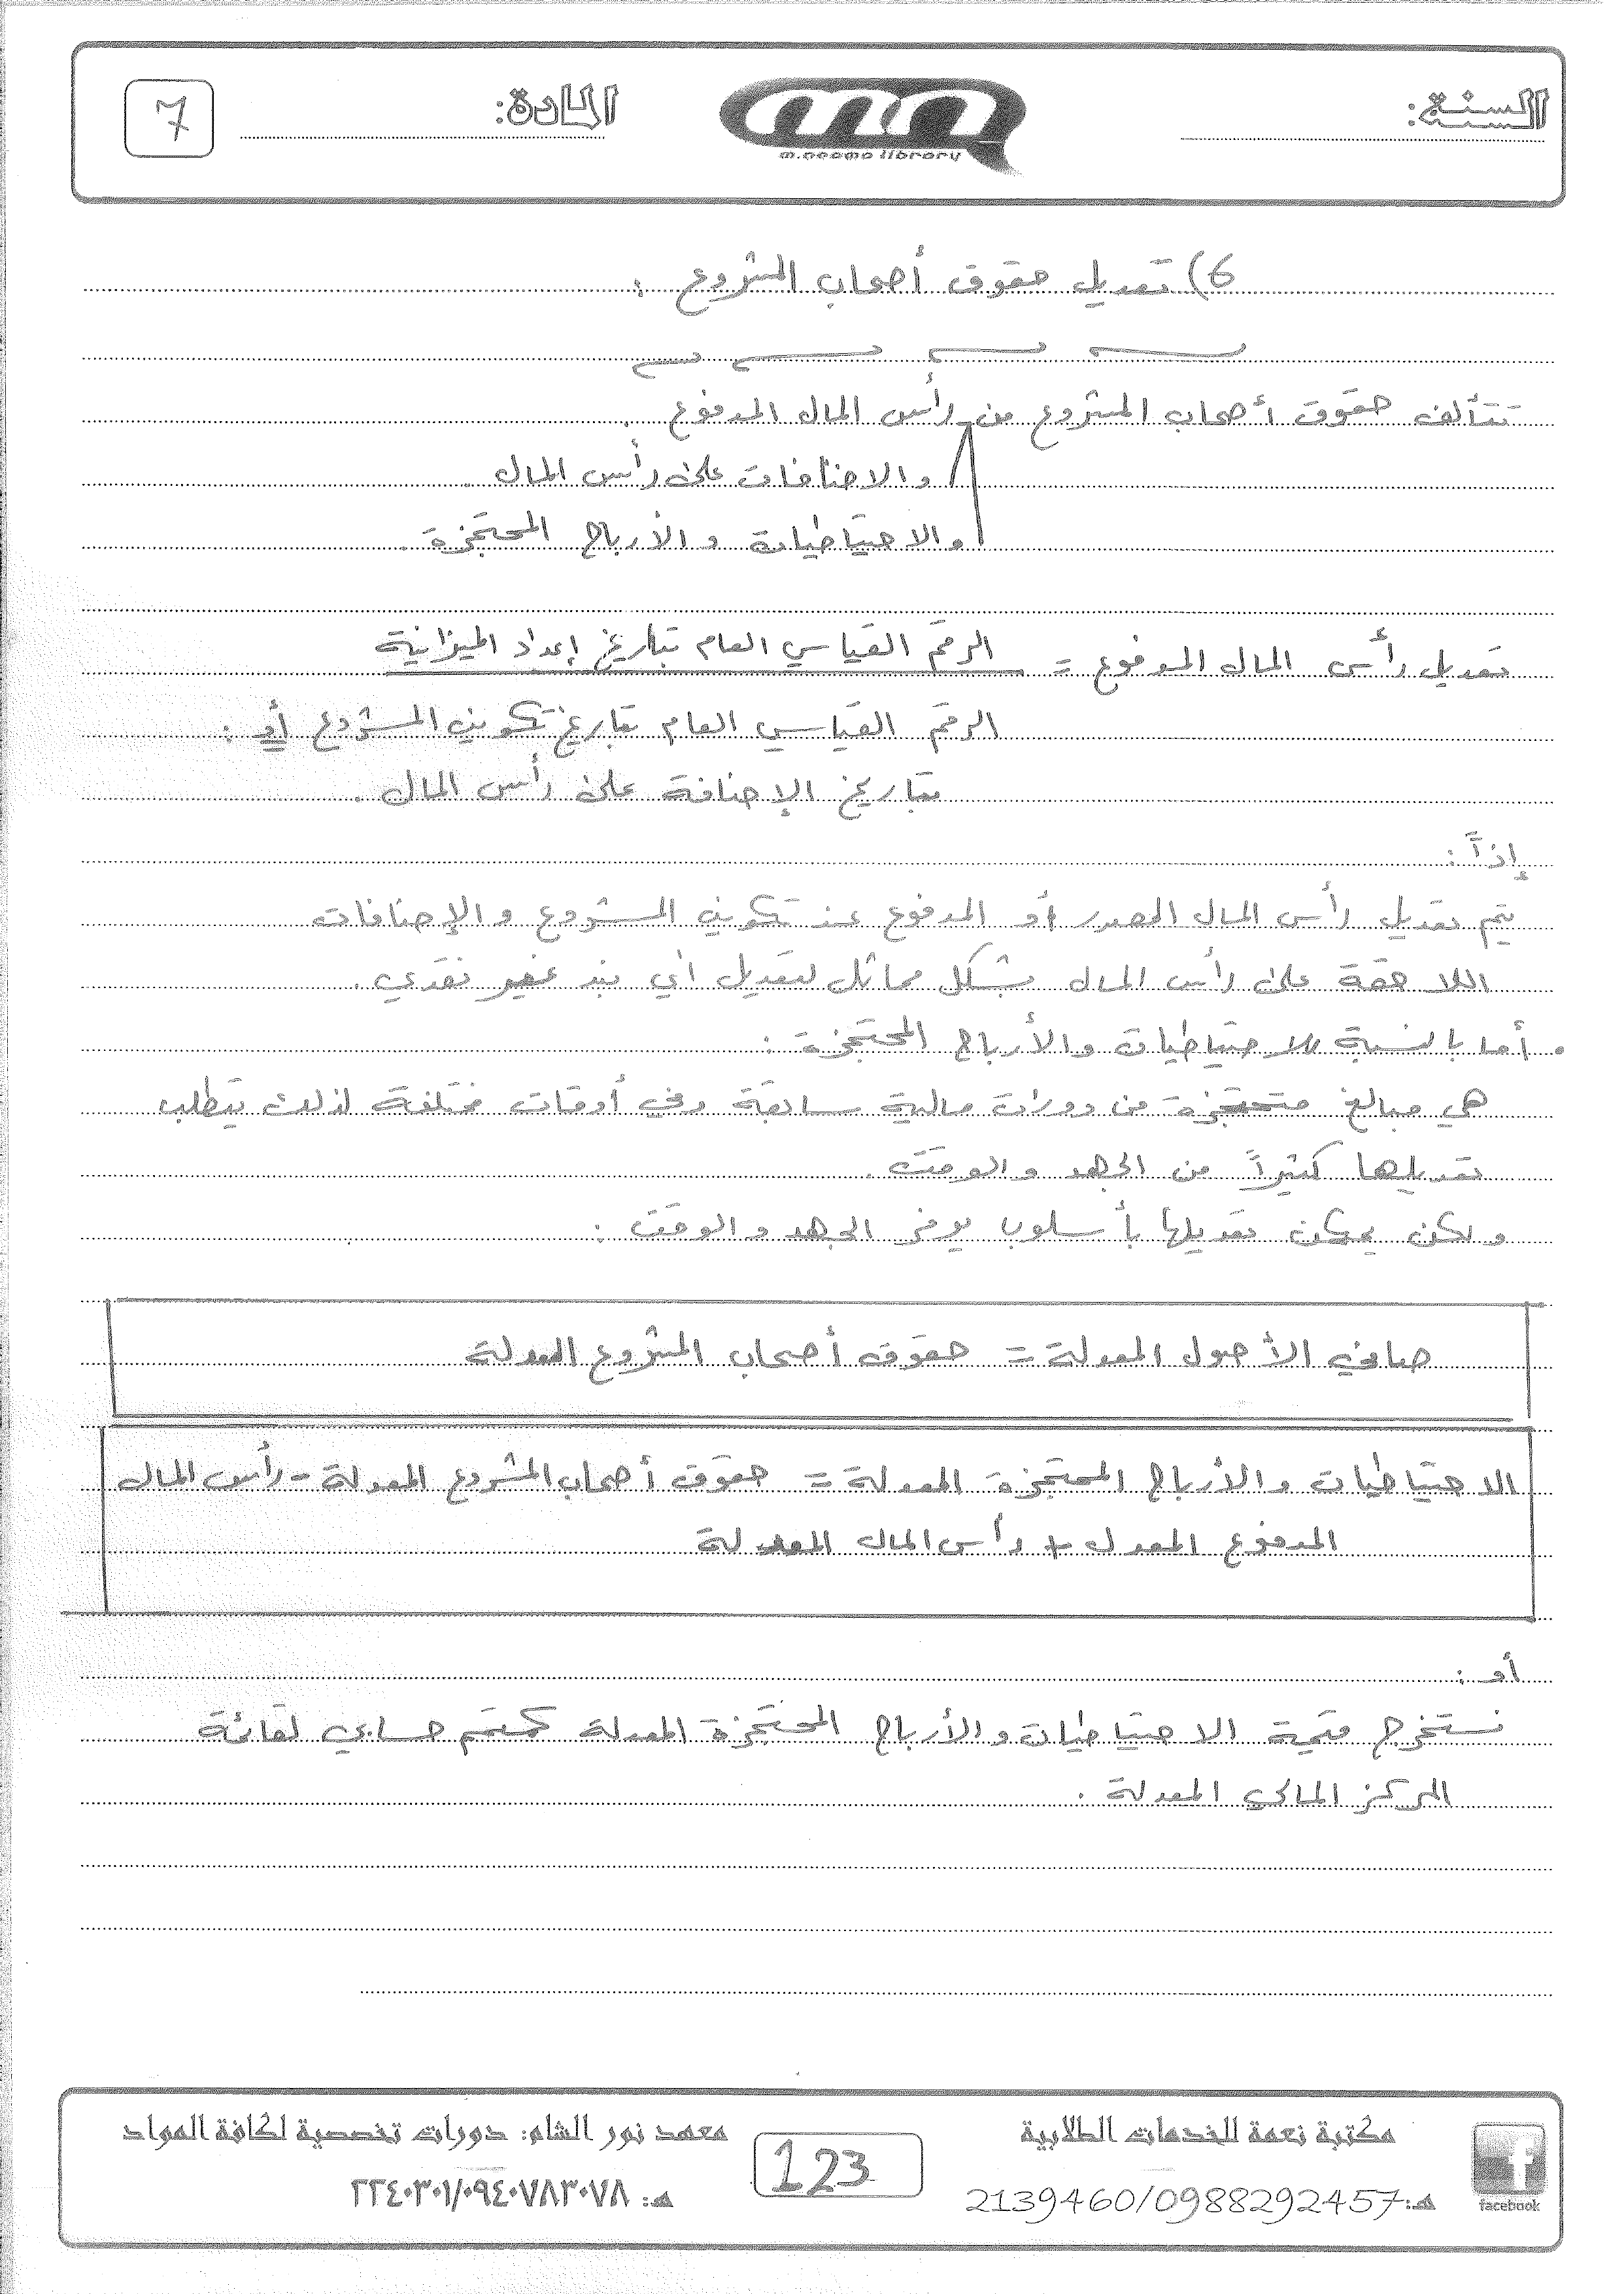 السنة:
m.neama library
المادة:
7
6) تعديل حقوق أصحاب المشروع :
تتألف حقوق أصحاب المشروع من رأس المال المدفوع .
والاضافات على رأس المال .
والاحتياطيات والأرباح المحتجزة .
تعديل رأس المال المدفوع = الرقم القياسي العام بتاريخ إعداد الميزانية
الرقم القياسي العام بتاريخ تكوين المشروع أو :
بتاريخ الإضافة على رأس المال .
إذاً :
يتم تعديل رأس المال المصدر أو المدفوع عند تكوين المشروع والإضافات
اللاحقة على رأس المال بشكل مماثل لتعديل أي بند غير نقدي .
• أما بالنسبة للاحتياطيات والأرباح المحتجزة :
هي مبالغ محتجزة من دورات مالية سابقة وفي أوقات مختلفة لذلك يتطلب
تعديلها كثيراً من الجهد والوقت .
ولكن يمكن تعديلها بأسلوب يوفر الجهد والوقت :
صافي الأصول المعدلة = حقوق أصحاب المشروع المعدلة
الاحتياطيات والأرباح المحتجزة المعدلة = حقوق أصحاب المشروع المعدلة - رأس المال
المدفوع المعدل + رأس المال المعدلة
أو :
نستخرج قيمة الاحتياطيات والأرباح المحتجزة المعدلة كمتمم حسابي لقائمة
المركز المالي المعدلة .
مكتبة نعمة للخدمات الطلابية
هـ: 2139460/0988292457
facebook
123
معهد نور الشام: دورات تخصصية لكافة المواد
هـ: ٢٢٤٠٣٠١/٠٩٤٠٧٨٣٠٧٨